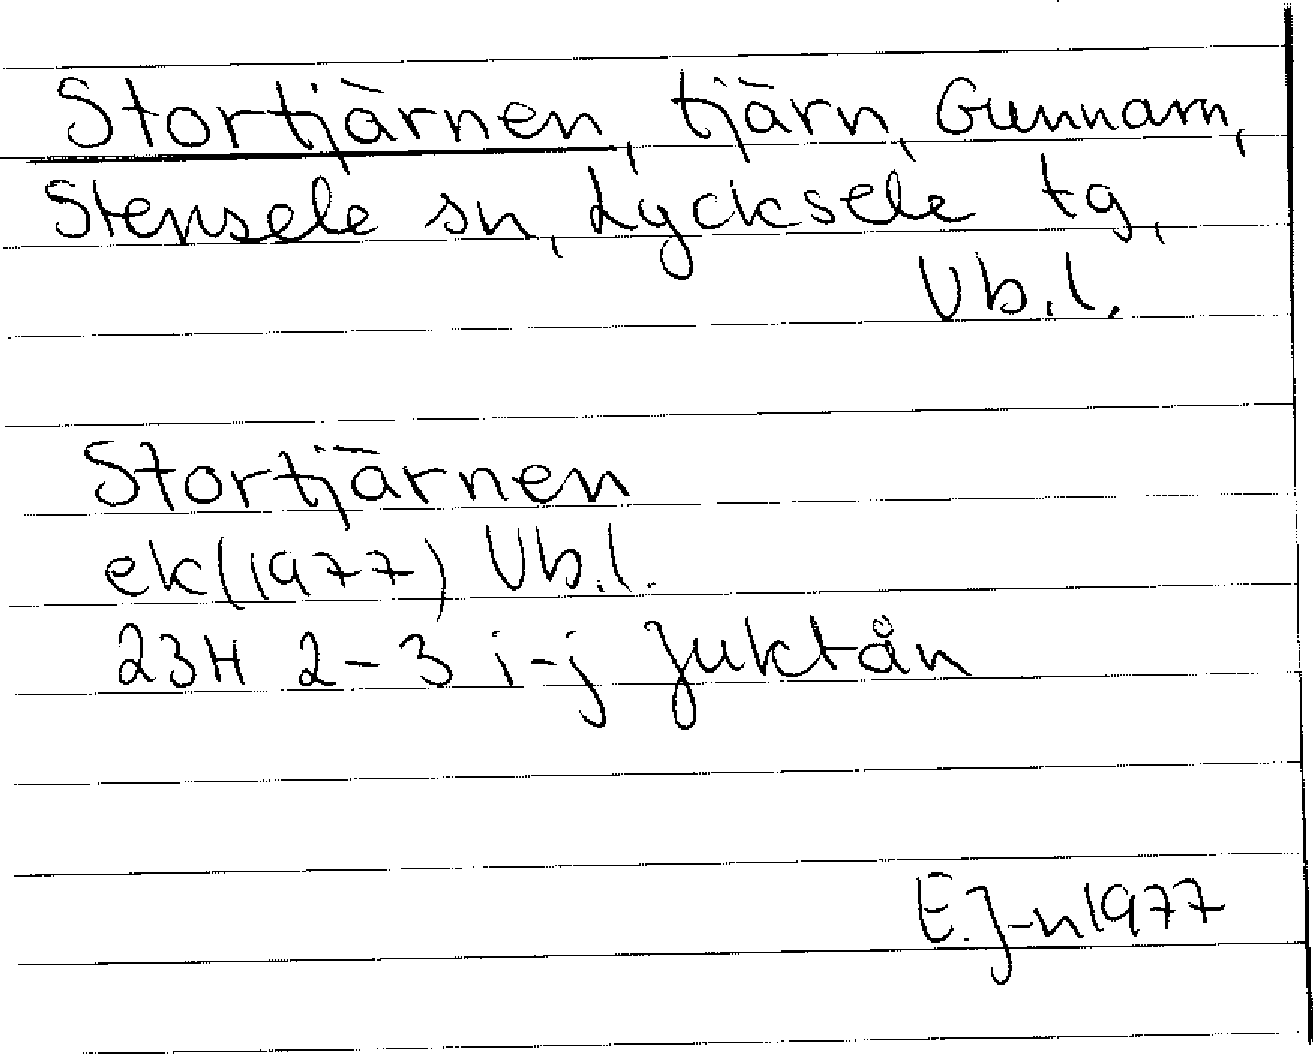 Stortjärnen, tjärn, Gunnarn,
Stensele sn, Lycksele tg,
Vb.l.
Stortjärnen
ek(1977) Vb.l.
23H 2-3 i-j Juktån
E.J-n 1977